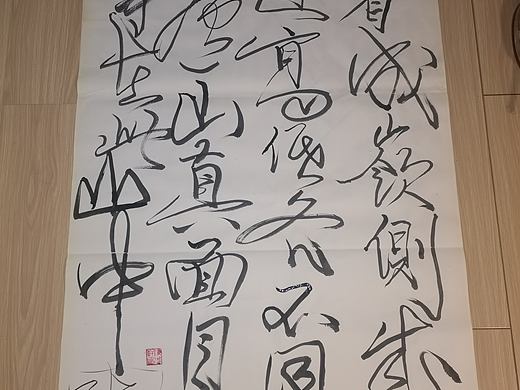 看成嶺側成
近高低各不同
廬山真面目
身在此山中